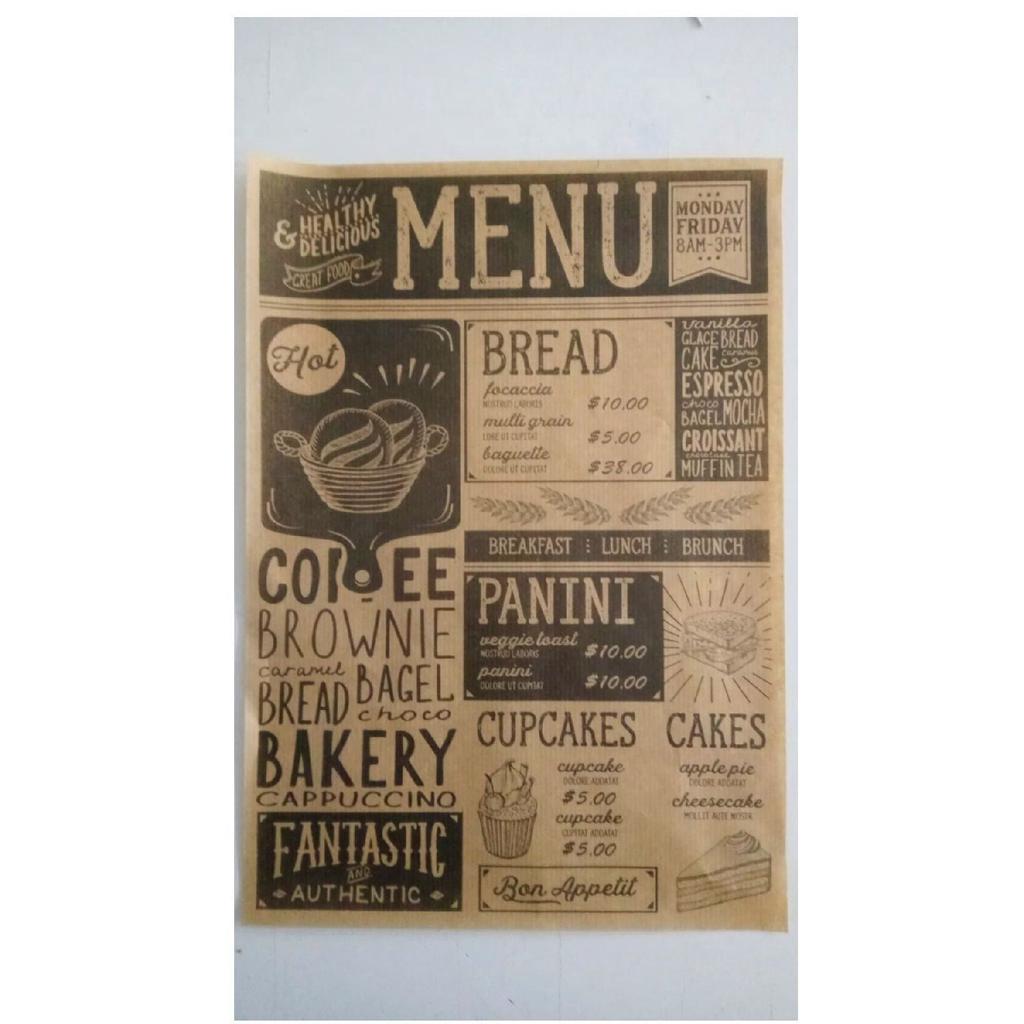 & HEALTHY
DELICIOUS
GREAT FOOD
MENU
MONDAY
FRIDAY
8AM-3PM
Hot
BREAD
focaccia
NOSTRUD LABORIS
$10.00
multi grain
LORE UT CUPITAT
$5.00
baguette
DOLORE UT CUPITAT
$38.00
vanilla
GLACE BREAD
CAKE caramel
ESPRESSO
choco
BAGEL MOCHA
CROISSANT
chocolate
MUFFIN TEA
BREAKFAST : LUNCH : BRUNCH
COFFEE
BROWNIE
caramel
BREAD BAGEL
choco
BAKERY
CAPPUCCINO
FANTASTIC
AND
AUTHENTIC
PANINI
veggie toast
NOSTRUD LABORIS
$10.00
panini
DOLORE UT CUPITAT
$10.00
CUPCAKES
cupcake
DOLORE ADDATAT
$5.00
cupcake
CUPITAT ADDATAT
$5.00
CAKES
apple pie
DOLORE ADDATAT
cheesecake
MOLLIT AUTE NOSTR
Bon Appetit